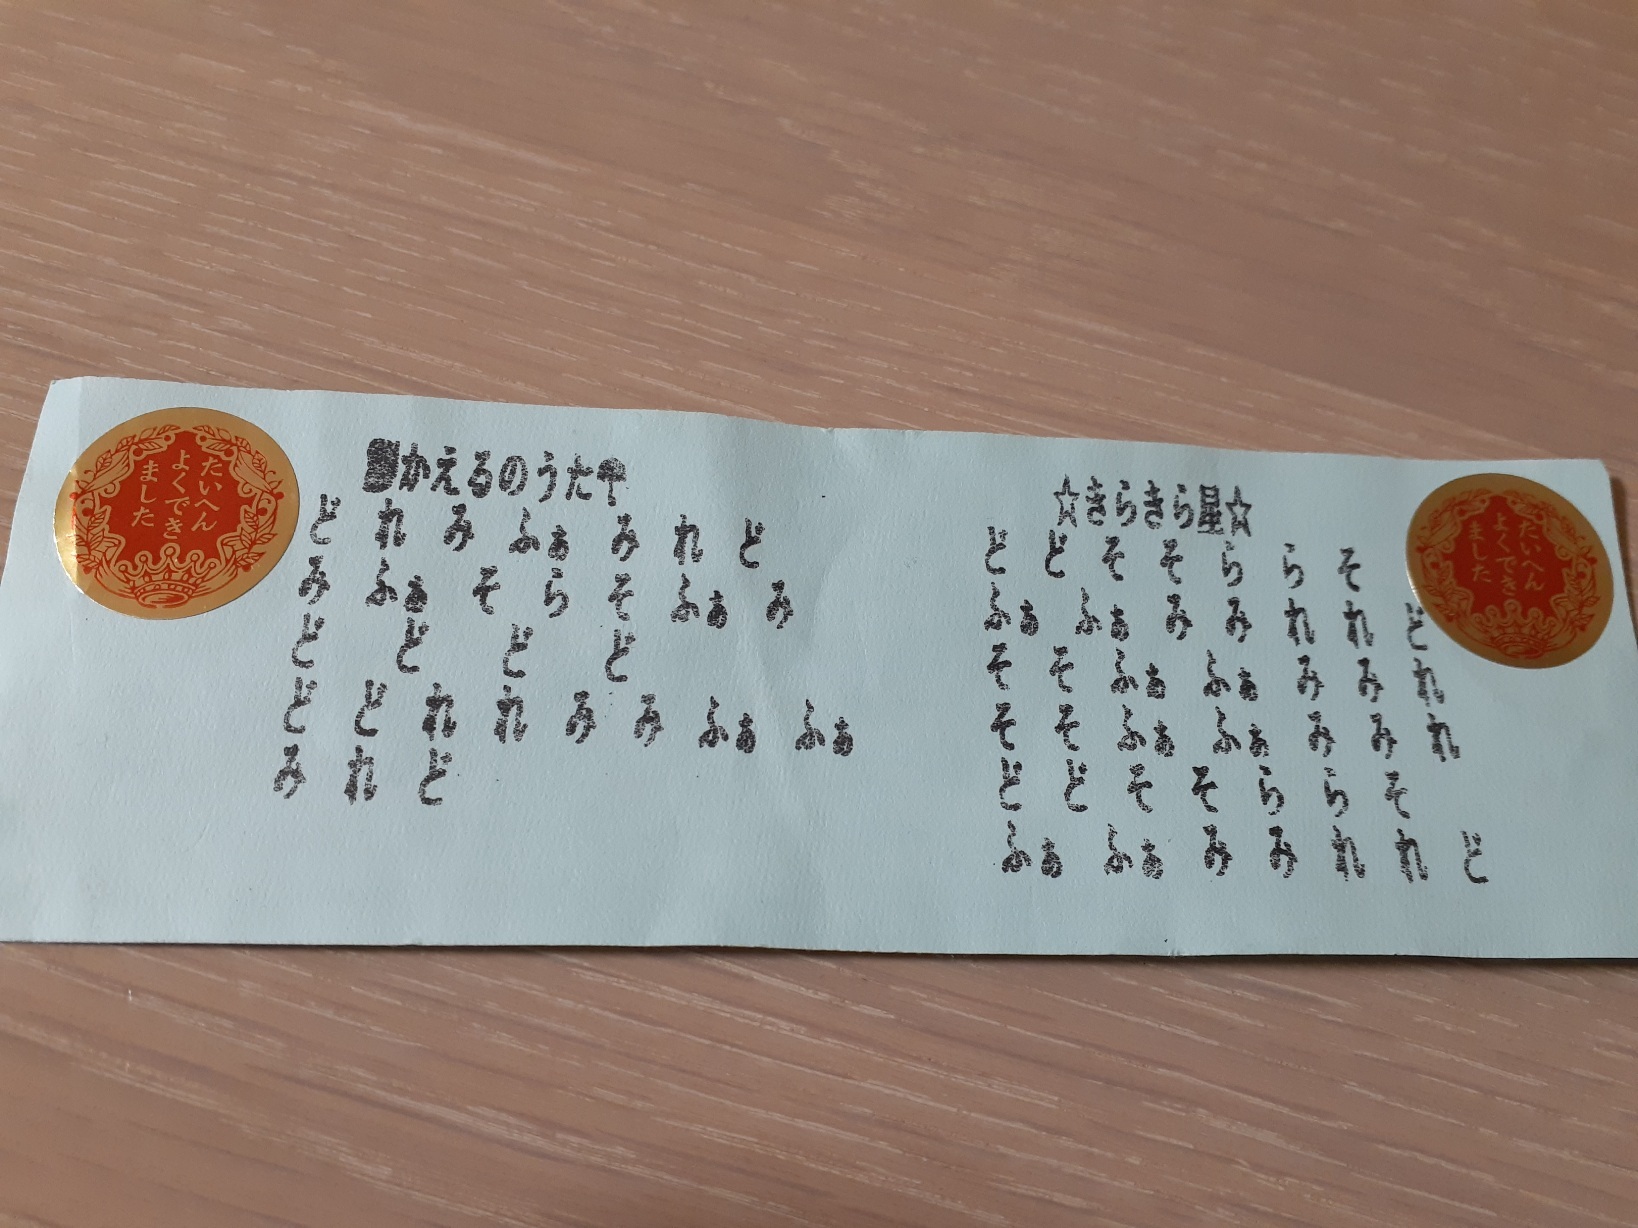 たいへん
よくでき
ました
かえるのうた
ど れ み ふぁ み れ ど
み ふぁ そ ら そ ふぁ み
ど ど ど ど
ど ど れ れ み み ふぁ ふぁ
み れ ど
☆きらきら星☆
ど ど そ そ ら ら そ
ふぁ ふぁ み み れ れ ど
そ そ ふぁ ふぁ み み れ
そ そ ふぁ ふぁ み み れ
ど ど そ そ ら ら そ
ふぁ ふぁ み み れ れ ど
たいへん
よくでき
ました